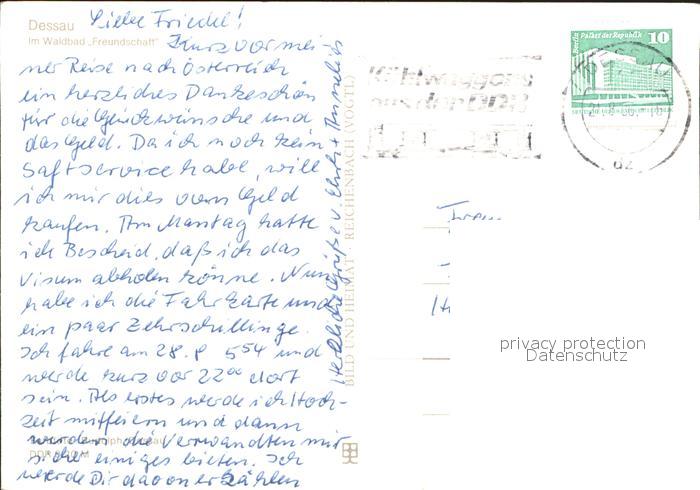 Dessau
Im Waldbad „Freundschaft"
Liebe Friedel!
Kurz vor mei-
ner Reise nach Österreich
ein herzliches Dankeschön
für die Glückwünsche und
das Geld. Da ich noch kein
Saftservice habe, will
ich mir dies vom Geld
kaufen. Am Montag hatte
ich Bescheid, daß ich das
Visum abholen könne. Nun
habe ich die Fahrkarte und
ein paar Zehrschillinge.
Ich fahre am 28.8 5 54 und
werde kurz vor 22 00 dort
sein. Als erstes werde ich Hoch-
zeit mitfeiern und dann
werden die Verwandten mir
sicher einiges bieten. Ich
werde Dir davon erzählen
Herzliche Grüße v. Ehrh. + Annelies
BILD UND HEIMAT REICHENBACH (VOGTL
Berlin Palast der Republik
10
Kühlwaggons
aus der DDR
DESSAU
privacy protection
Datenschutz